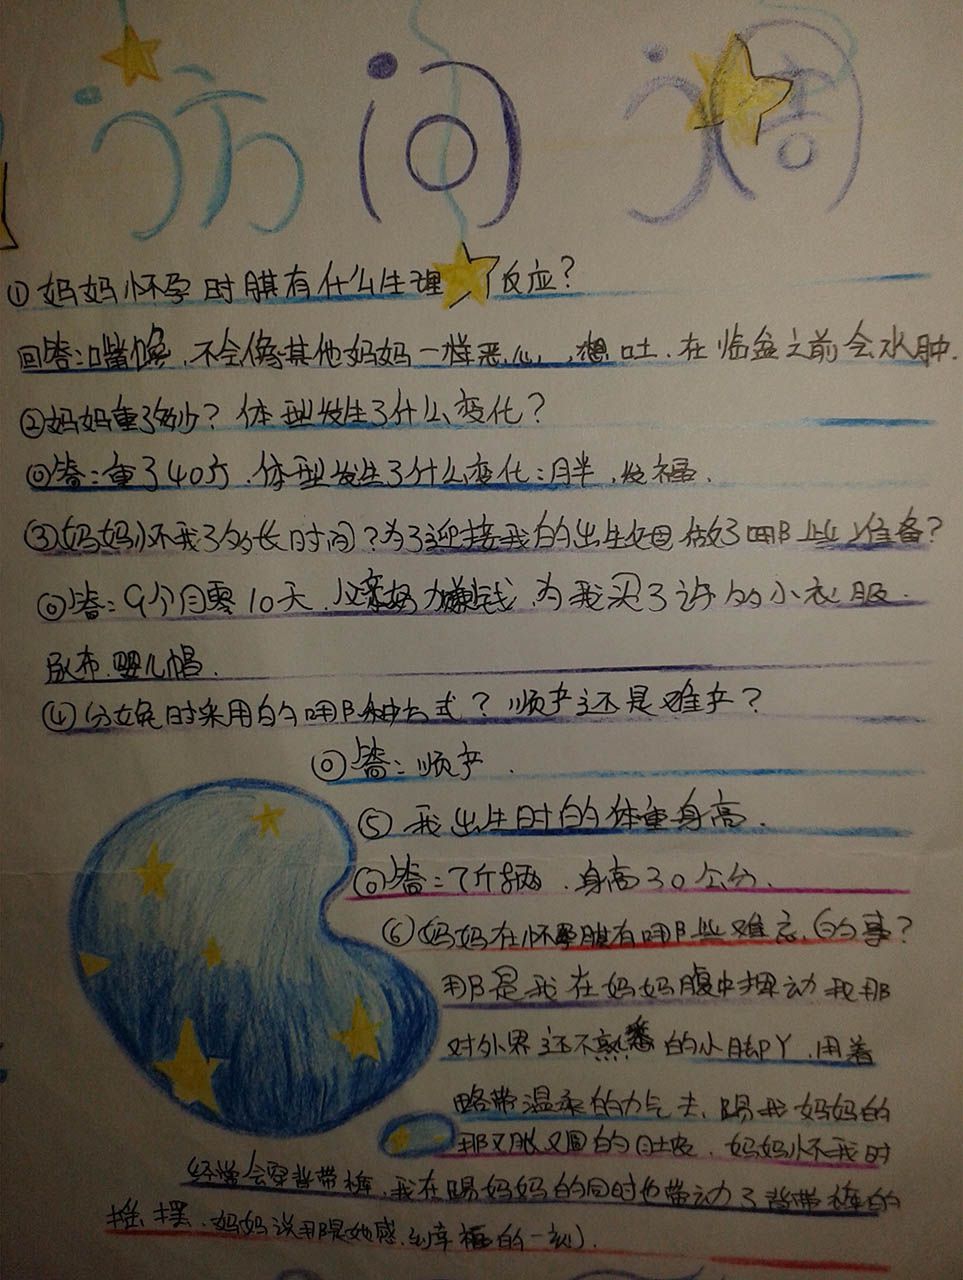 访问调
①妈妈怀孕时期有什么生理反应?
回答:嘴馋,不会像其他妈妈一样恶心,想吐.在临盆之前会水肿.
②妈妈重了多少?体型发生了什么变化?
回答:重了40斤.体型发生了什么变化:胖,发福.
③妈妈怀我了多长时间?为了迎接我的出生她做了哪些准备?
回答:9个月零10天.父亲努力赚钱,为我买了许多小衣服.
尿布.婴儿帽.
④分娩时采用的哪种方式?顺产还是难产?
回答:顺产.
⑤我出生时的体重身高.
回答:7斤8两.身高30公分.
⑥妈妈在怀孕期有哪些难忘的事?
那是我在妈妈腹中挥动我那
对外界还不熟悉的小脚丫,用着
略带温柔的力气去踢我妈妈的
那又胀又圆的肚皮.妈妈怀我时
经常会穿背带裤,我在踢妈妈的同时也带动了背带裤的
摇摆.妈妈说那是她感到幸福的一刻.